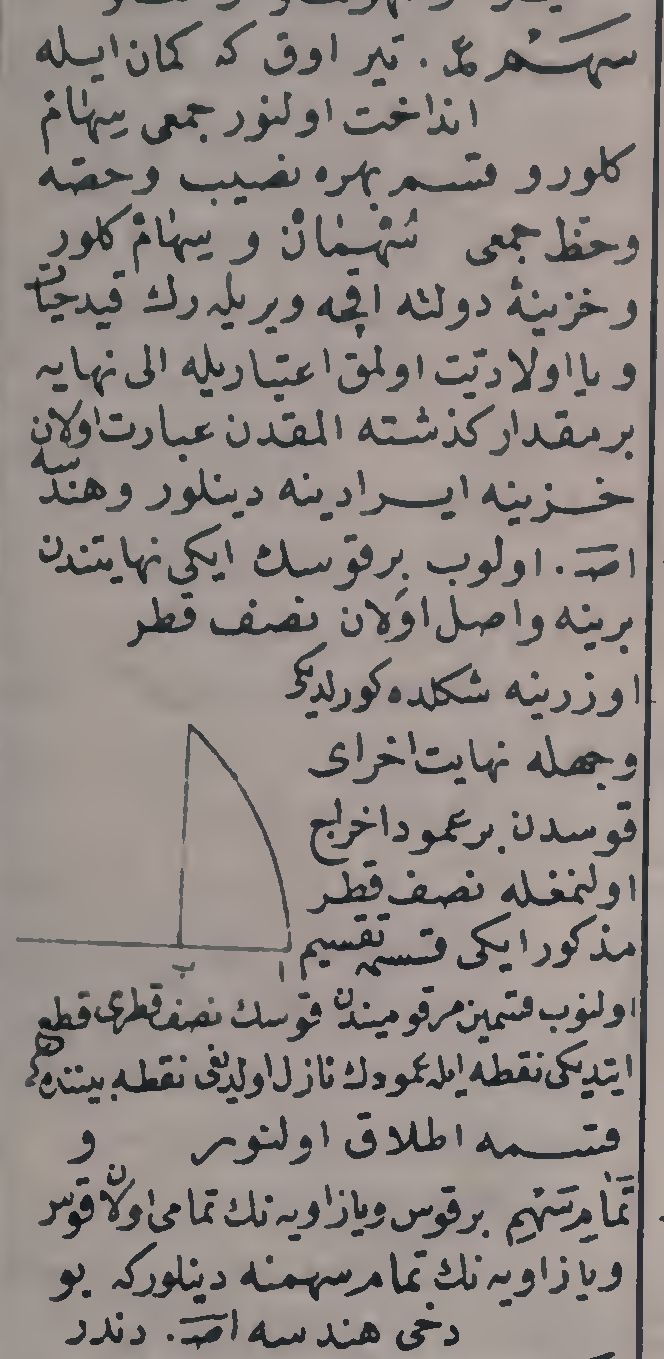 سهم ع. تیر اوق که کمان ایله
انداخت اولنور جمعی سهام
کلور و قسم بهره نصیب وحصه
وحظ جمعی سُهْمَان و سهام کلور
وخزینهٔ دولته اقچه ویریله رك قید حیات
و یا اولادیت اولمق اعتباریله الی نهایه
برمقدار کذشته المقدن عبارت اولان
خزینه ایرادینه دینلور وهندسه
اصـ. اولوب برقوسك ایکی نهایتندن
برینه واصل اولان نصف قطر
اوزرینه شکلده کورلدیکی
وجهله نهایت اخرای
قوسدن برعمود اخراج
اولنمغله نصف قطر
مذکور ایکی قسمه تقسیم
ب ا
اولنوب قسمین مرقومیندن قوسك نصف قطری قطع
ایتدیکی نقطه ایله عمودك نازل اولدیغی نقطه بیننده کی
قسمه اطلاق اولنور و
تمام سهم برقوس ویا زاویه نك تمامی اولان قوس
ویا زاویه نك تمام سهمنه دینلورکه بو
دخی هندسه اصـ. دندر